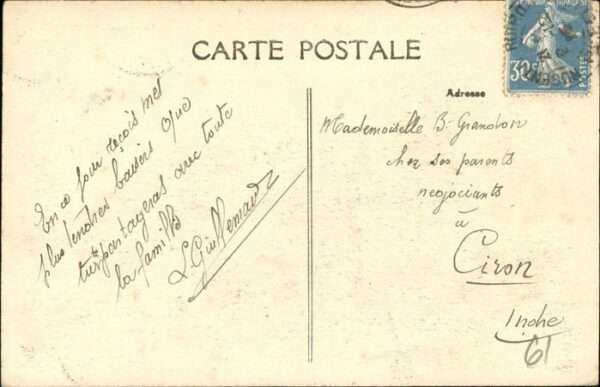 CARTE POSTALE
En ce jour reçois mes
plus tendres baisers que
tu partageras avec toute
la famille
L Guillemard
30c
POSTES
Adresse
Mademoiselle B. Grandon
chez ses parents
negociants
à
Ciron
Indre
61